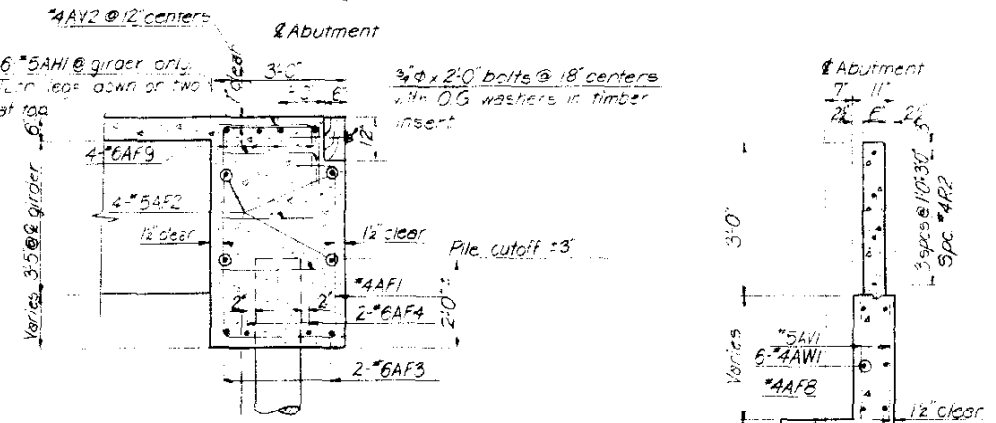 #4AV2 @ 12" centers
℄ Abutment
6-#5AH1 @ girder only
Turn legs down on two
at top
1" clear
3'-0"
6"
¾"ϕ x 2'-0" bolts @ 18" centers
with O.G. washers in timber
insert
6"
12"
4-#6AF9
4-#5AF2
1½" clear
1½" clear
Varies 3'-5 @ ℄ girder
Pile cutoff ±3"
#4AF1
2"
2"
2-#6AF4
2'-0"±
2-#6AF3
℄ Abutment
7"
11"
2½"
6"
2½"
3"
3'-0"
3 spcs @ 1'0"=3'0"
Spc. #4R2
Varies
#5AV1
6-#4AW1
#4AF8
1½" clear